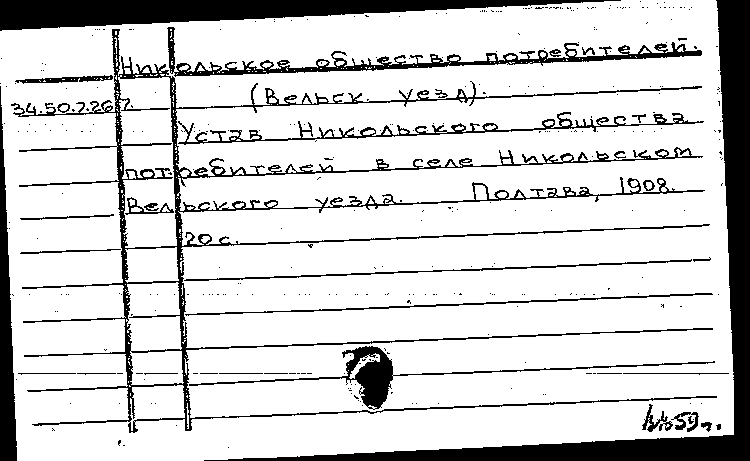 Никольское общество потребителей.
34.50.7.267. (Вельск. уезд).
Устав Никольского общества
потребителей в селе Никольском
Вельского уезда. Полтава, 1908.
20 с.